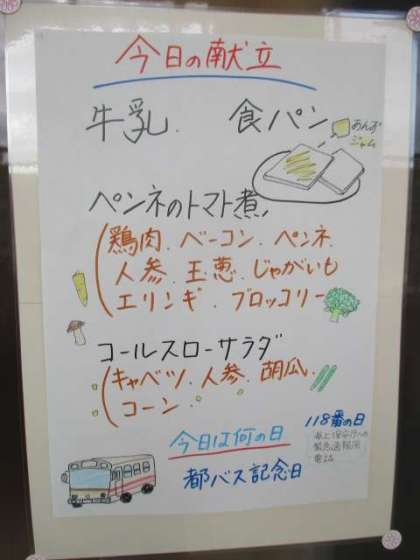 今日の献立
牛乳. 食パン
あんず
ジャム
ペンネのトマト煮
(鶏肉.ベーコン.ペンネ
人参.玉葱.じゃがいも
エリンギ.ブロッコリー
コールスローサラダ
(キャベツ.人参.胡瓜.
コーン
今日は何の日
118番の日
海上保安庁への
緊急通報用
電話
都バス記念日